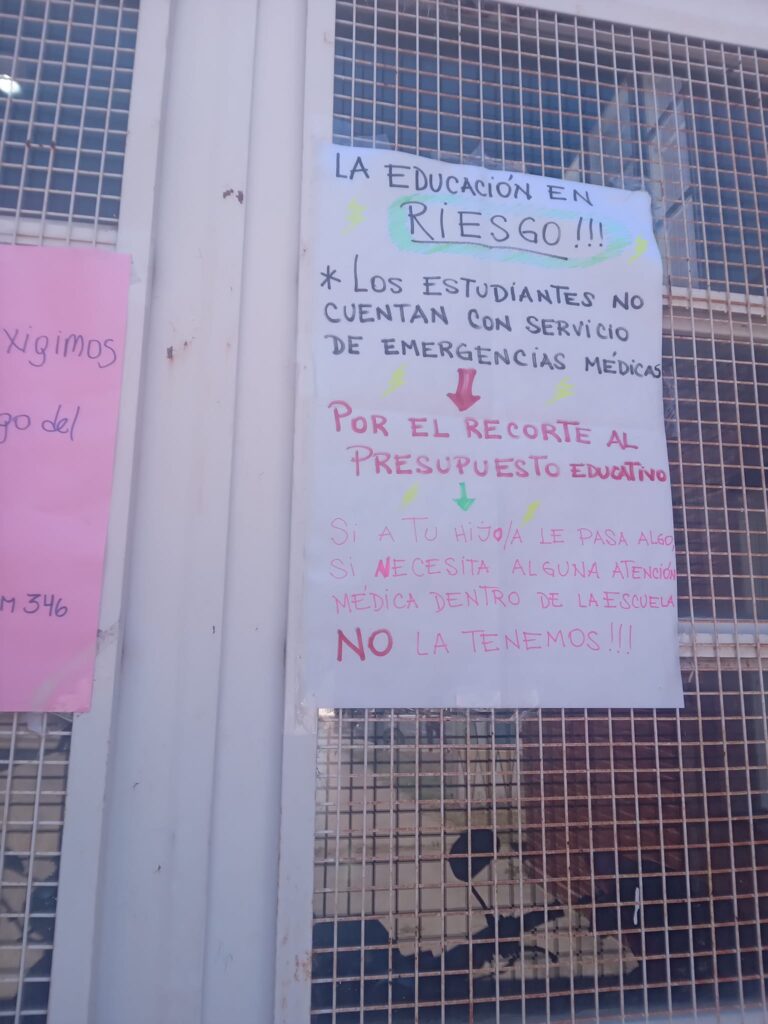 LA EDUCACIÓN EN
RIESGO!!!
* LOS ESTUDIANTES NO
CUENTAN CON SERVICIO
DE EMERGENCIAS MÉDICAS
POR EL RECORTE AL
PRESUPUESTO EDUCATIVO
SI A TU HIJO/A LE PASA ALGO,
SI NECESITA ALGUNA ATENCIÓN
MÉDICA DENTRO DE LA ESCUELA
NO LA TENEMOS!!!
xigimos
go del
M 346